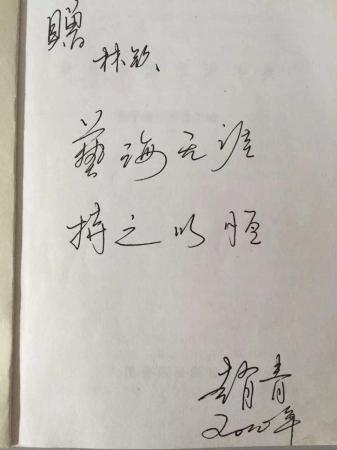 贈
林欽
藝海无涯
持之以恒
趙青
2020年